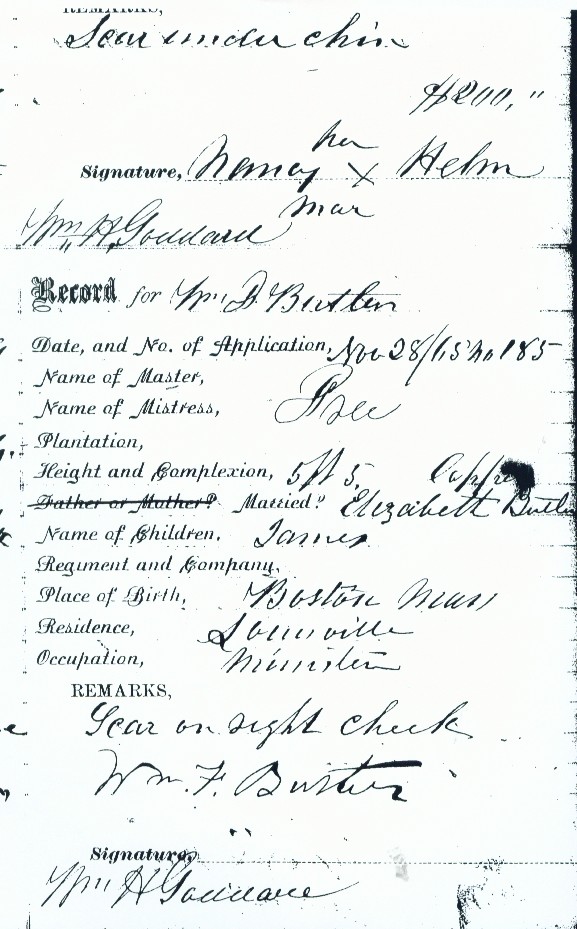 REMARKS,
Scar under chin
$200,"
her
Signature, Nancy X Helm
mar
Wm. H. Goddard
Record for Wm D Butler
Date, and No. of Application, Nov 28/65 No 185
Name of Master,
Name of Mistress, Free
Plantation,
Height and Complexion, 5 ft 5. Copper
Father or Mother? Married? Elizabeth Butler
Name of Children, James
Regiment and Company,
Place of Birth, Boston Mass
Residence, Louisville
Occupation, Minister
REMARKS,
Scar on right cheek
Wm. F. Butler
Signature,
Wm H Goddard